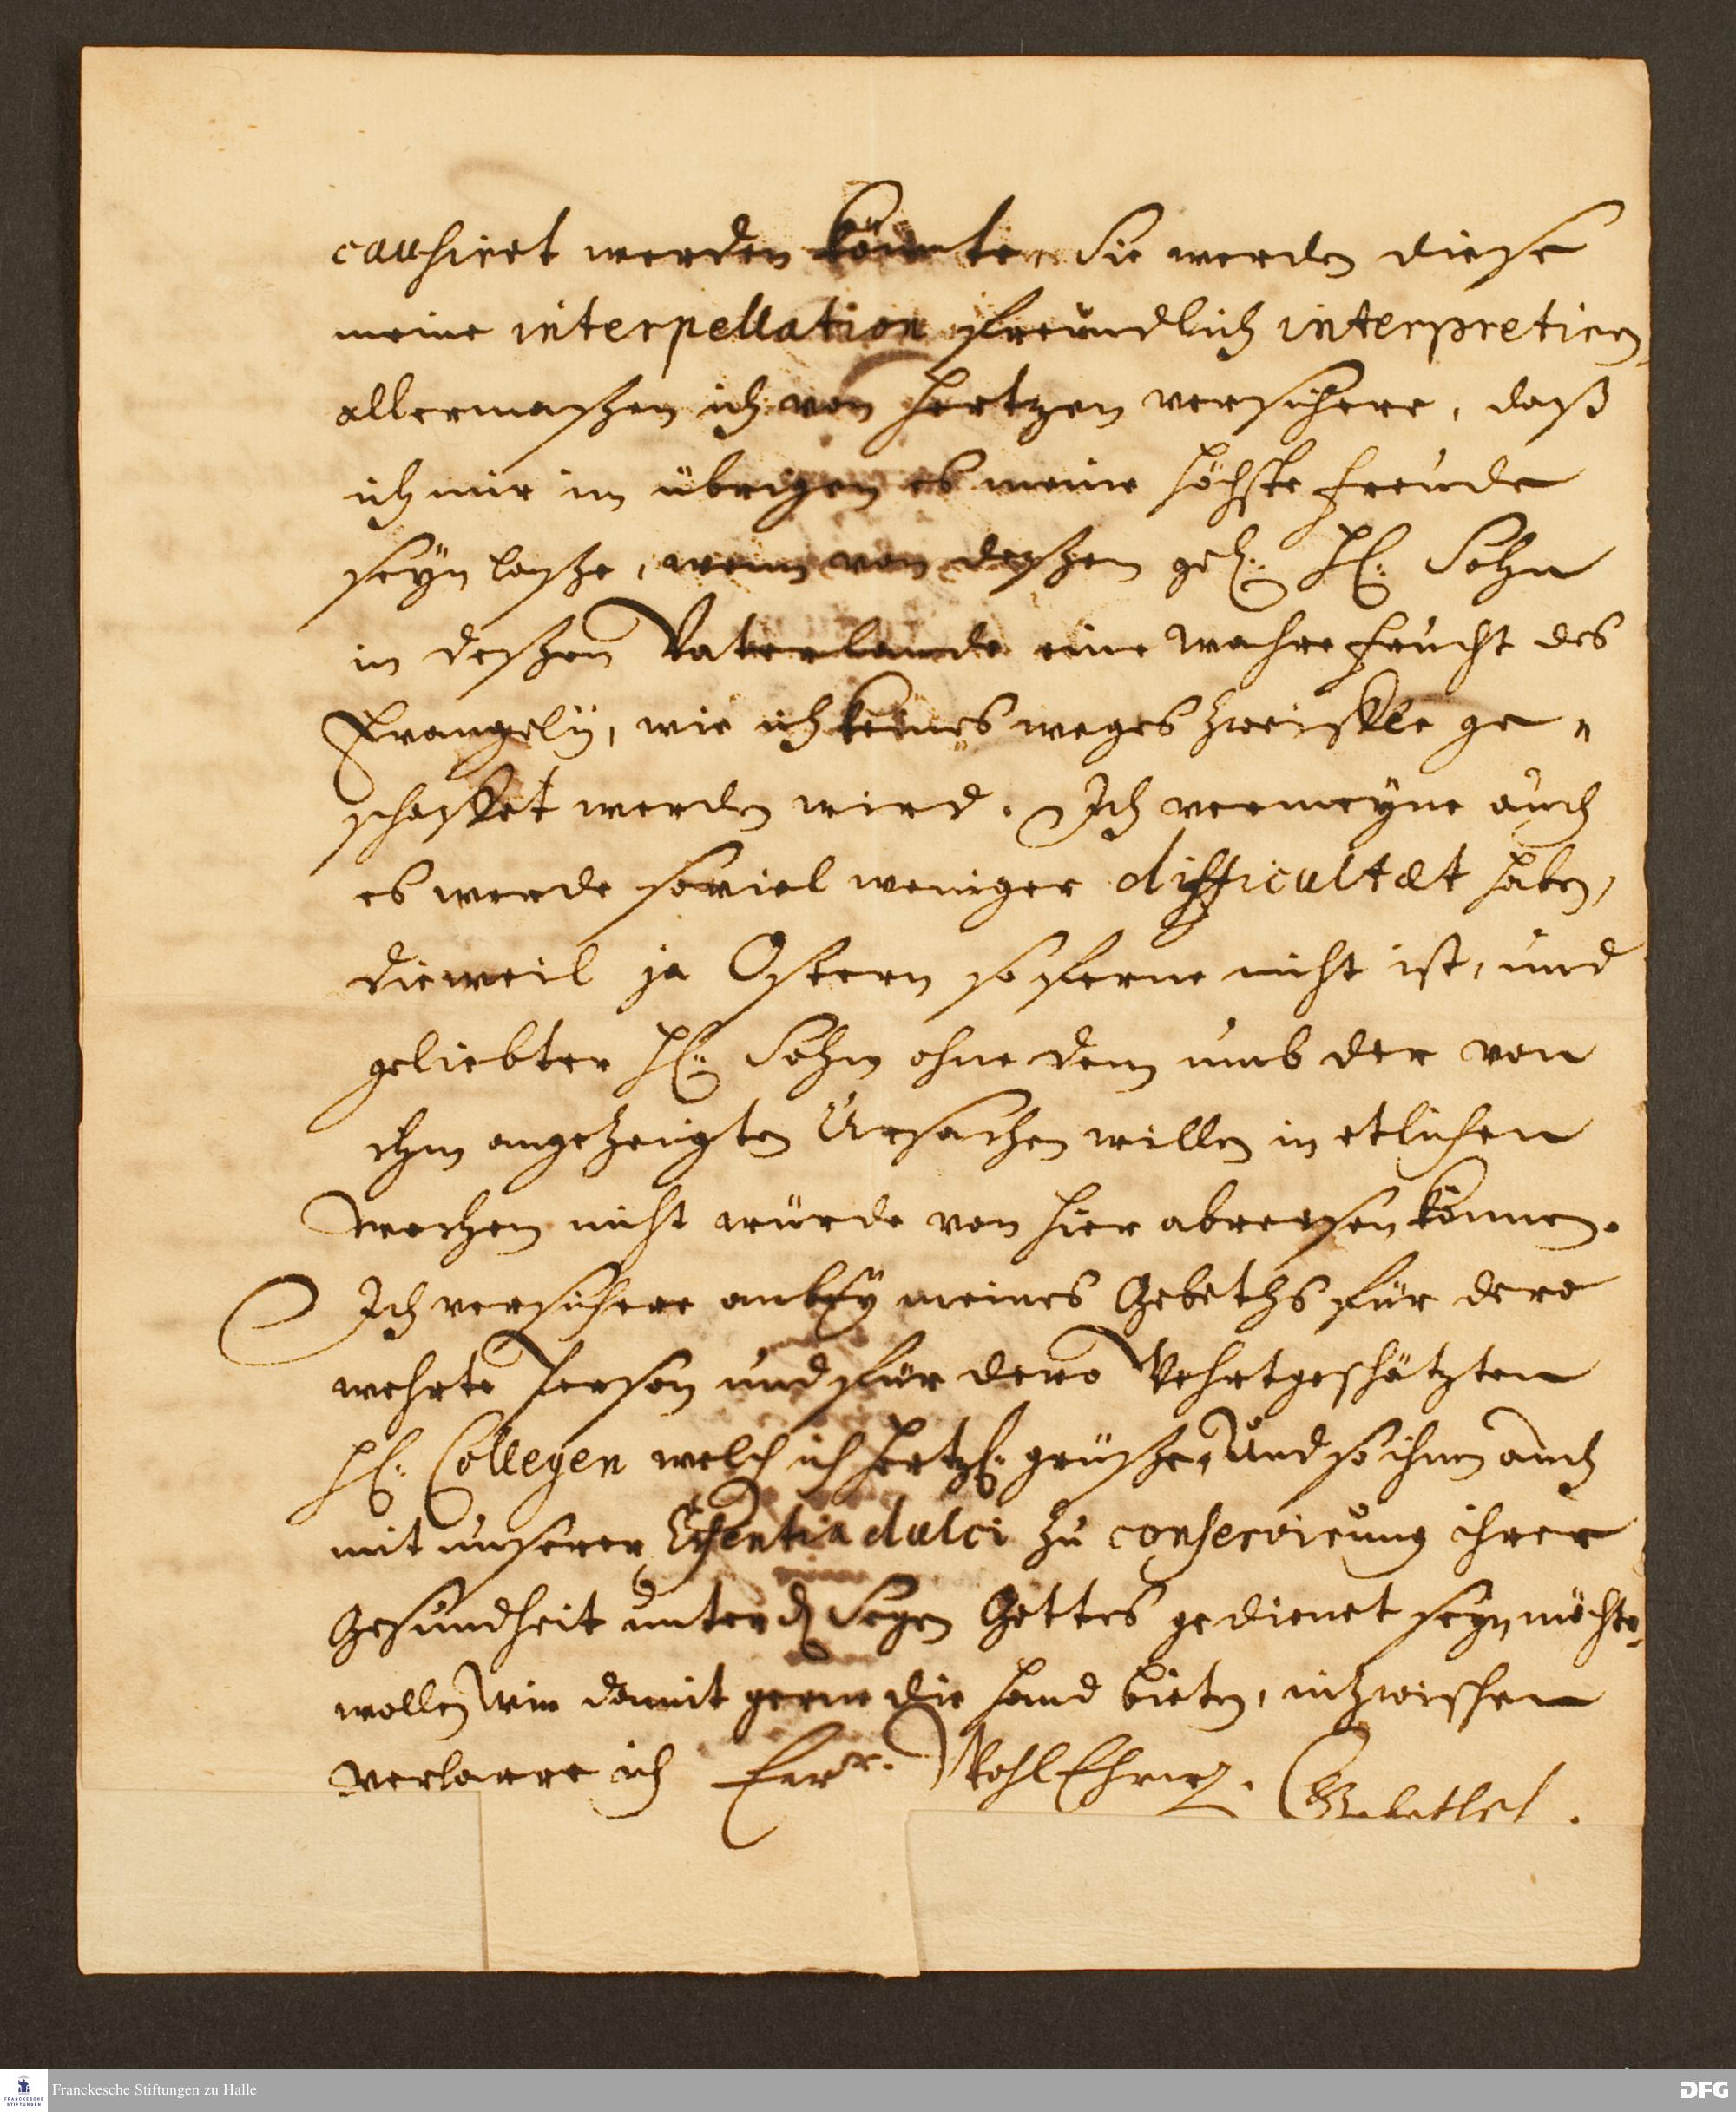 causiret werden könte. Sie werden diese
meine interpellation freundlich interpretiren,
allermaßen ich von Hertzen versichere, daß
ich mir im übrigen es meine höchste freude
seyn laße, wenn von deßen gel. H. Sohn
in deßen Vaterlande eine wahre frucht des
Evangelij, wie ich keines weges zweiffle ge-
schaffet werden wird. Ich vermeyne auch
es werde soviel weniger difficultæt haben,
dieweil ja Ostern so ferne nicht ist, und
geliebter H. Sohn ohne dem umb der von
ihm angezeigten Ursachen willen in etlichen
wochen nicht würde von hier abreisen können.
Ich versichere anbey meines Gebeths für dero
wehrte Person und für dero Wehrtgeschätzten
H. Collegen welch ich hertzl. grüße, Und so ihnen auch
mit unserer Essentia dulci zu conservirung ihrer
Gesundheit unter d. Segen Gottes gedienet seyn möchte,
wollen wir damit gerne die Hand bieten, inzwischen
verharre ich Eurr. WohlEhrw. Gebethsl.
Franckesche Stiftungen zu Halle
DFG